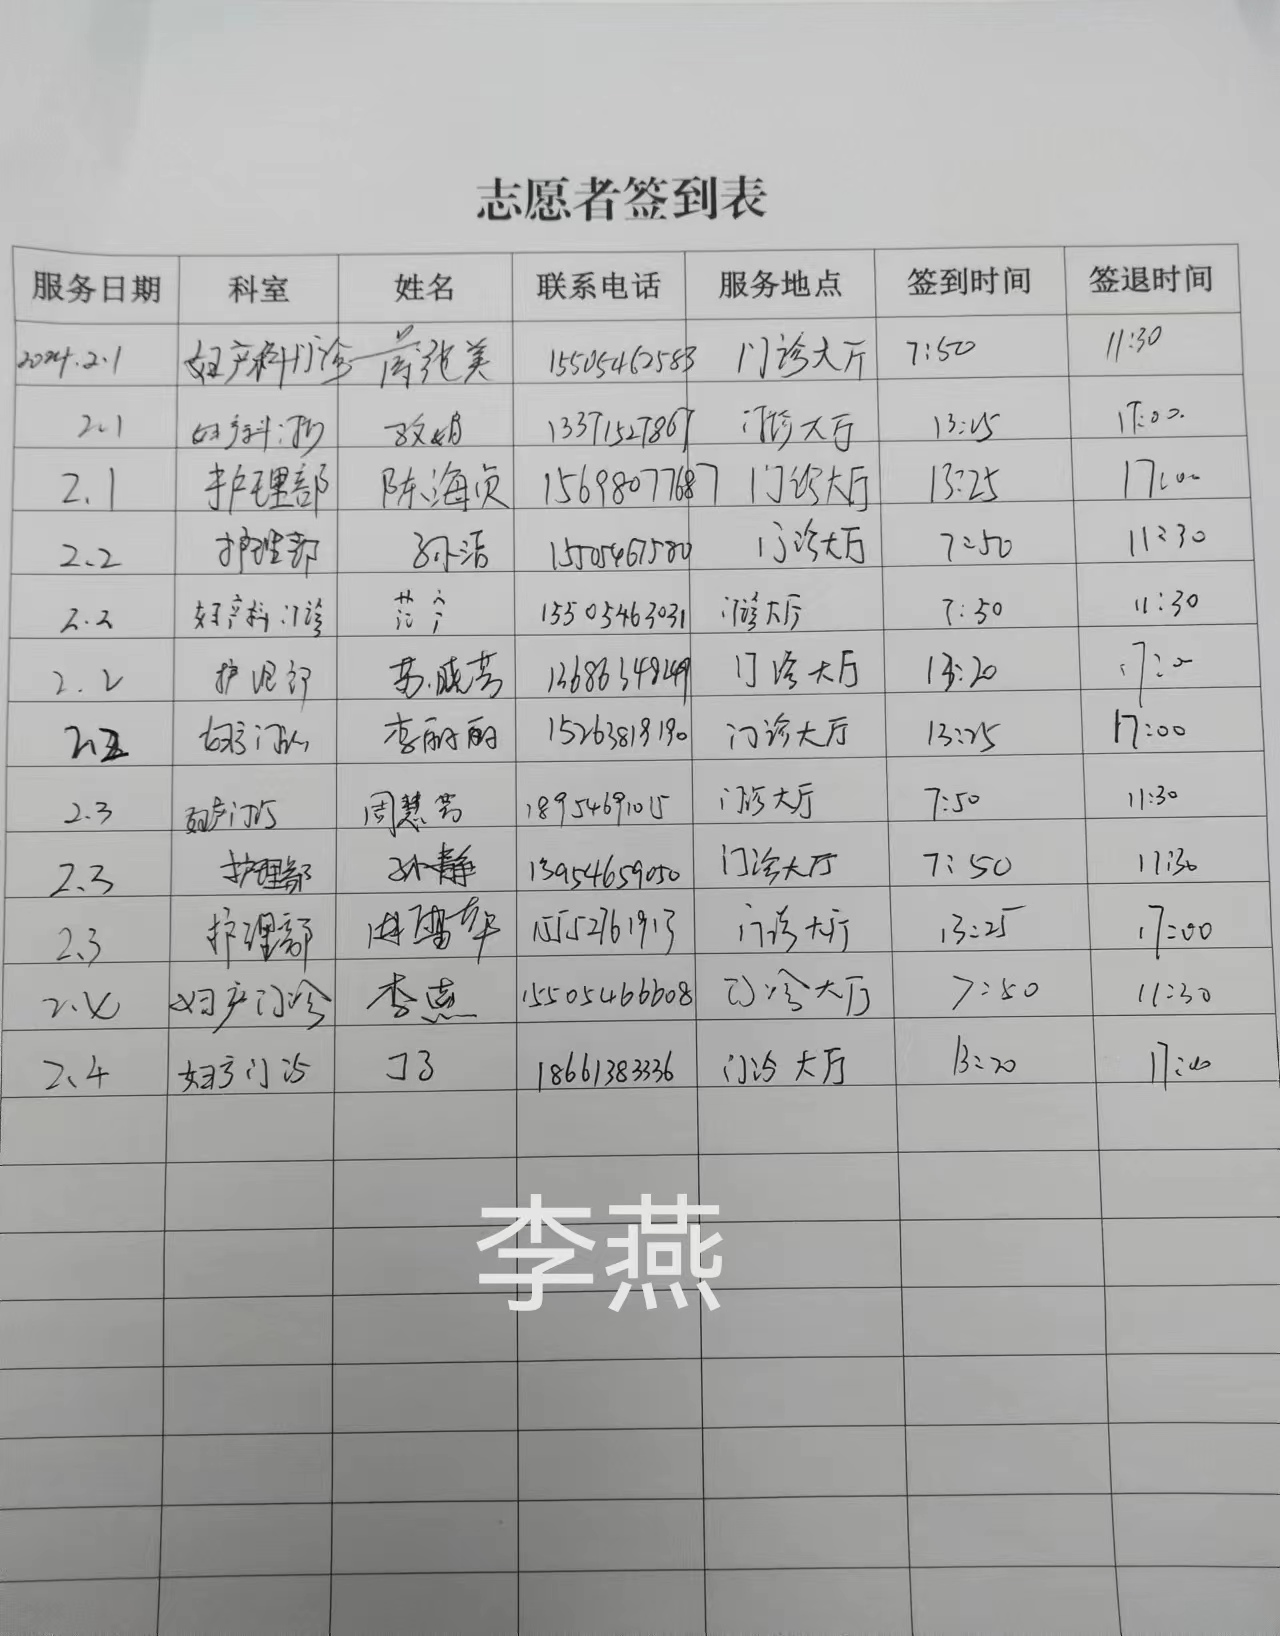 志愿者签到表
服务日期 科室 姓名 联系电话 服务地点 签到时间 签退时间
2024.2.1 妇产科门诊 美 15505462583 门诊大厅 7:50 11:30
2.1 妇产科门诊 13371527867 门诊大厅 13:25 17:00
2.1 护理部 陈海贞 15698077687 门诊大厅 13:25 17:00
2.2 护理部 孙洁 15505467580 门诊大厅 7:50 11:30
2.2 妇产科门诊 15505463031 门诊大厅 7:50 11:30
2.2 护理部 苏晓芳 门诊大厅 13:20 17:00
2.2 妇产门诊 李丽丽 门诊大厅 13:25 17:00
2.3 妇产门诊 周慧芳 18954691015 门诊大厅 7:50 11:30
2.3 护理部 孙静 13954659050 门诊大厅 7:50 11:30
2.3 护理部 15552761913 门诊大厅 13:25 17:00
2.4 妇产门诊 李燕 15505466608 门诊大厅 7:50 11:30
2.4 妇产门诊 18661383336 门诊大厅 13:20 17:00
李燕